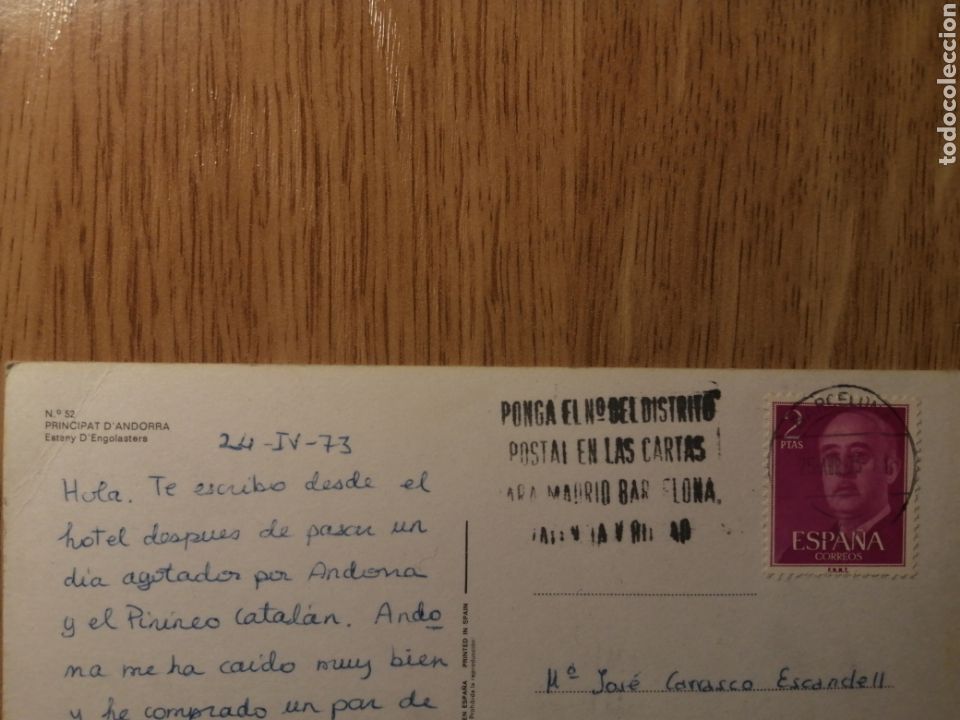 todocoleccion
N.º 52
PRINCIPAT D'ANDORRA
Estany D'Engolasters
24-IV-73
Hola. Te escribo desde el
hotel despues de pasar un
día agotador por Andorra
y el Pirineo Catalán. Ando
rra me ha caido muy bien
y he comprado un par de
EN ESPAÑA PRINTED IN SPAIN
Prohibida la reproducción
PONGA EL Nº DEL DISTRITO
POSTAL EN LAS CARTAS
ARA MADRID BAR ELONA,
2
PTAS
ESPAÑA
CORREOS
F.N.M.T.
Mª José Carrasco Escandell